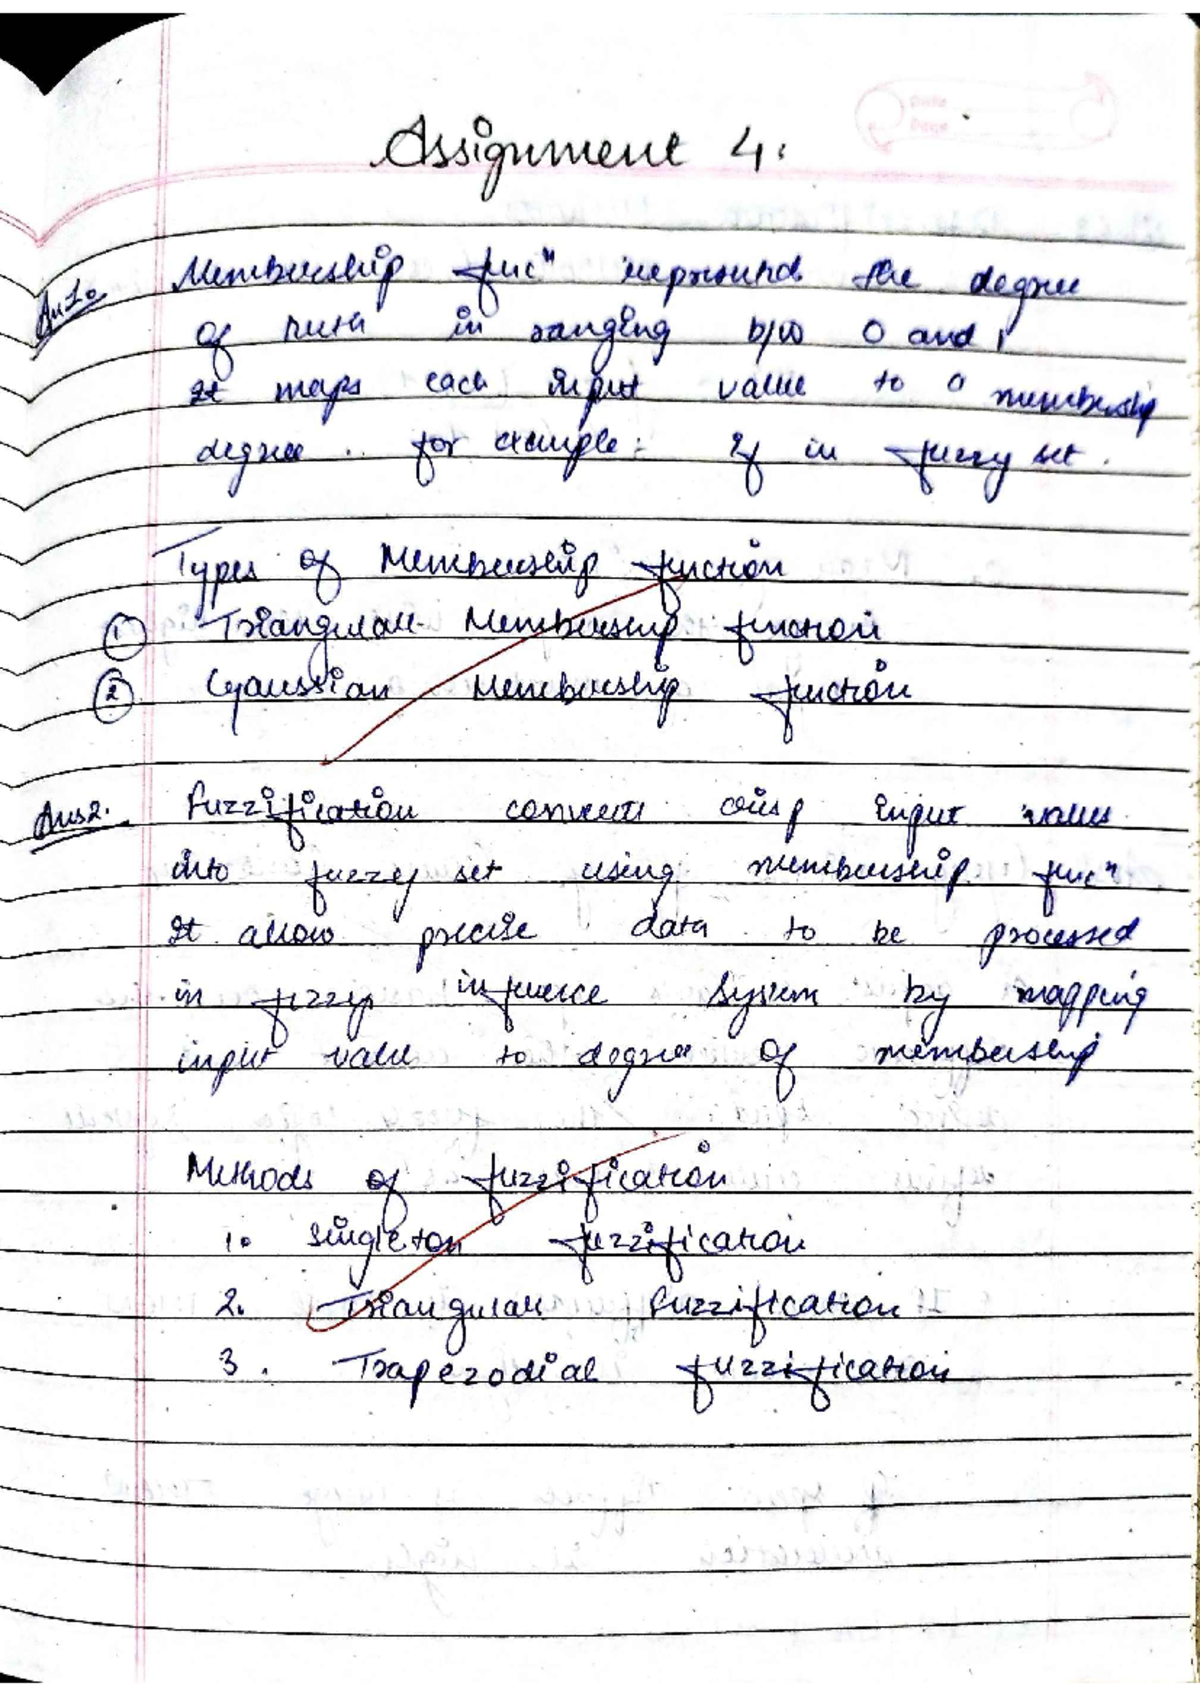 Assignment 4:
Ans1. Membership funcⁿ represents the degree
of truth in ranging b/w 0 and 1
It maps each input value to a membership
degree. for example: If in fuzzy set.
Types of Membership function
① Triangular Membership function
② Gaussian Membership function
Ans2. Fuzzification converts crisp input values
into fuzzy set using membership funcⁿ
It allow precise data to be processed
in fuzzy inference system by mapping
input value to degree of membership
Methods of fuzzification
1. Singleton fuzzification
2. Triangular fuzzification
3. Trapezodial fuzzification